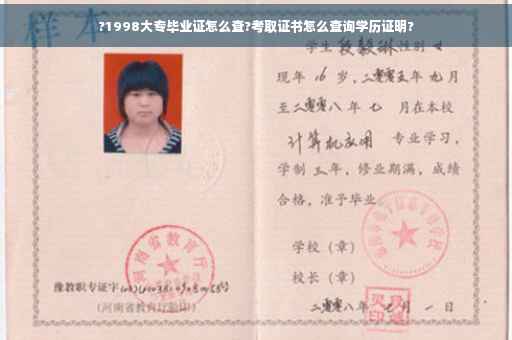 ?1998大专毕业证怎么查?考取证书怎么查询学历证明?
样本
学生段毅琳性别 女
现年 16 岁，二零零五年 九月
至二零零八 年 七 月在本校
计算机应用 专业学习，
学制 三 年，修业期满，成绩
合格，准予毕业
学校（章）
校长（章）
二零零八年 七 月 一 日
河南省教育厅
豫教职专证字
(河南省教育厅验印)